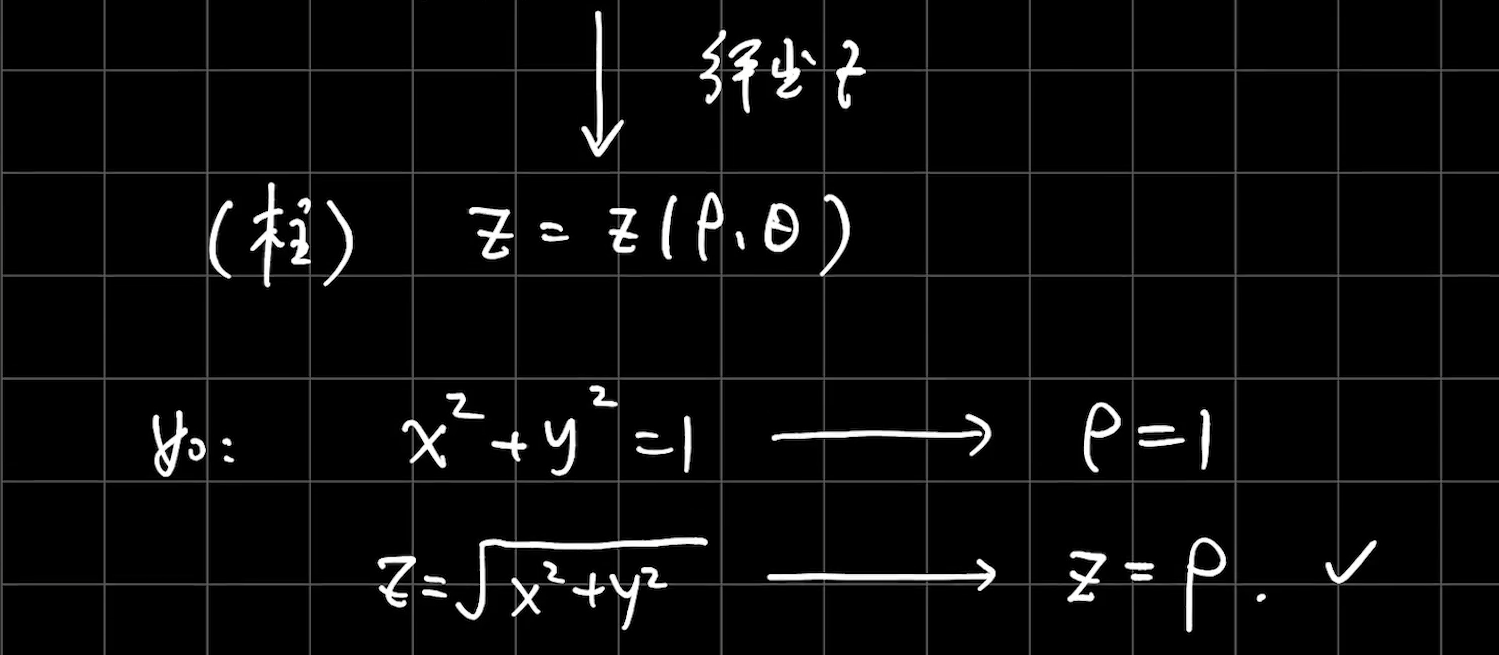 解出 z
(柱) z = z(ρ, θ)
如: x²+y²=1 ⟶ ρ=1
z=√(x²+y²) ⟶ z=ρ. ✓